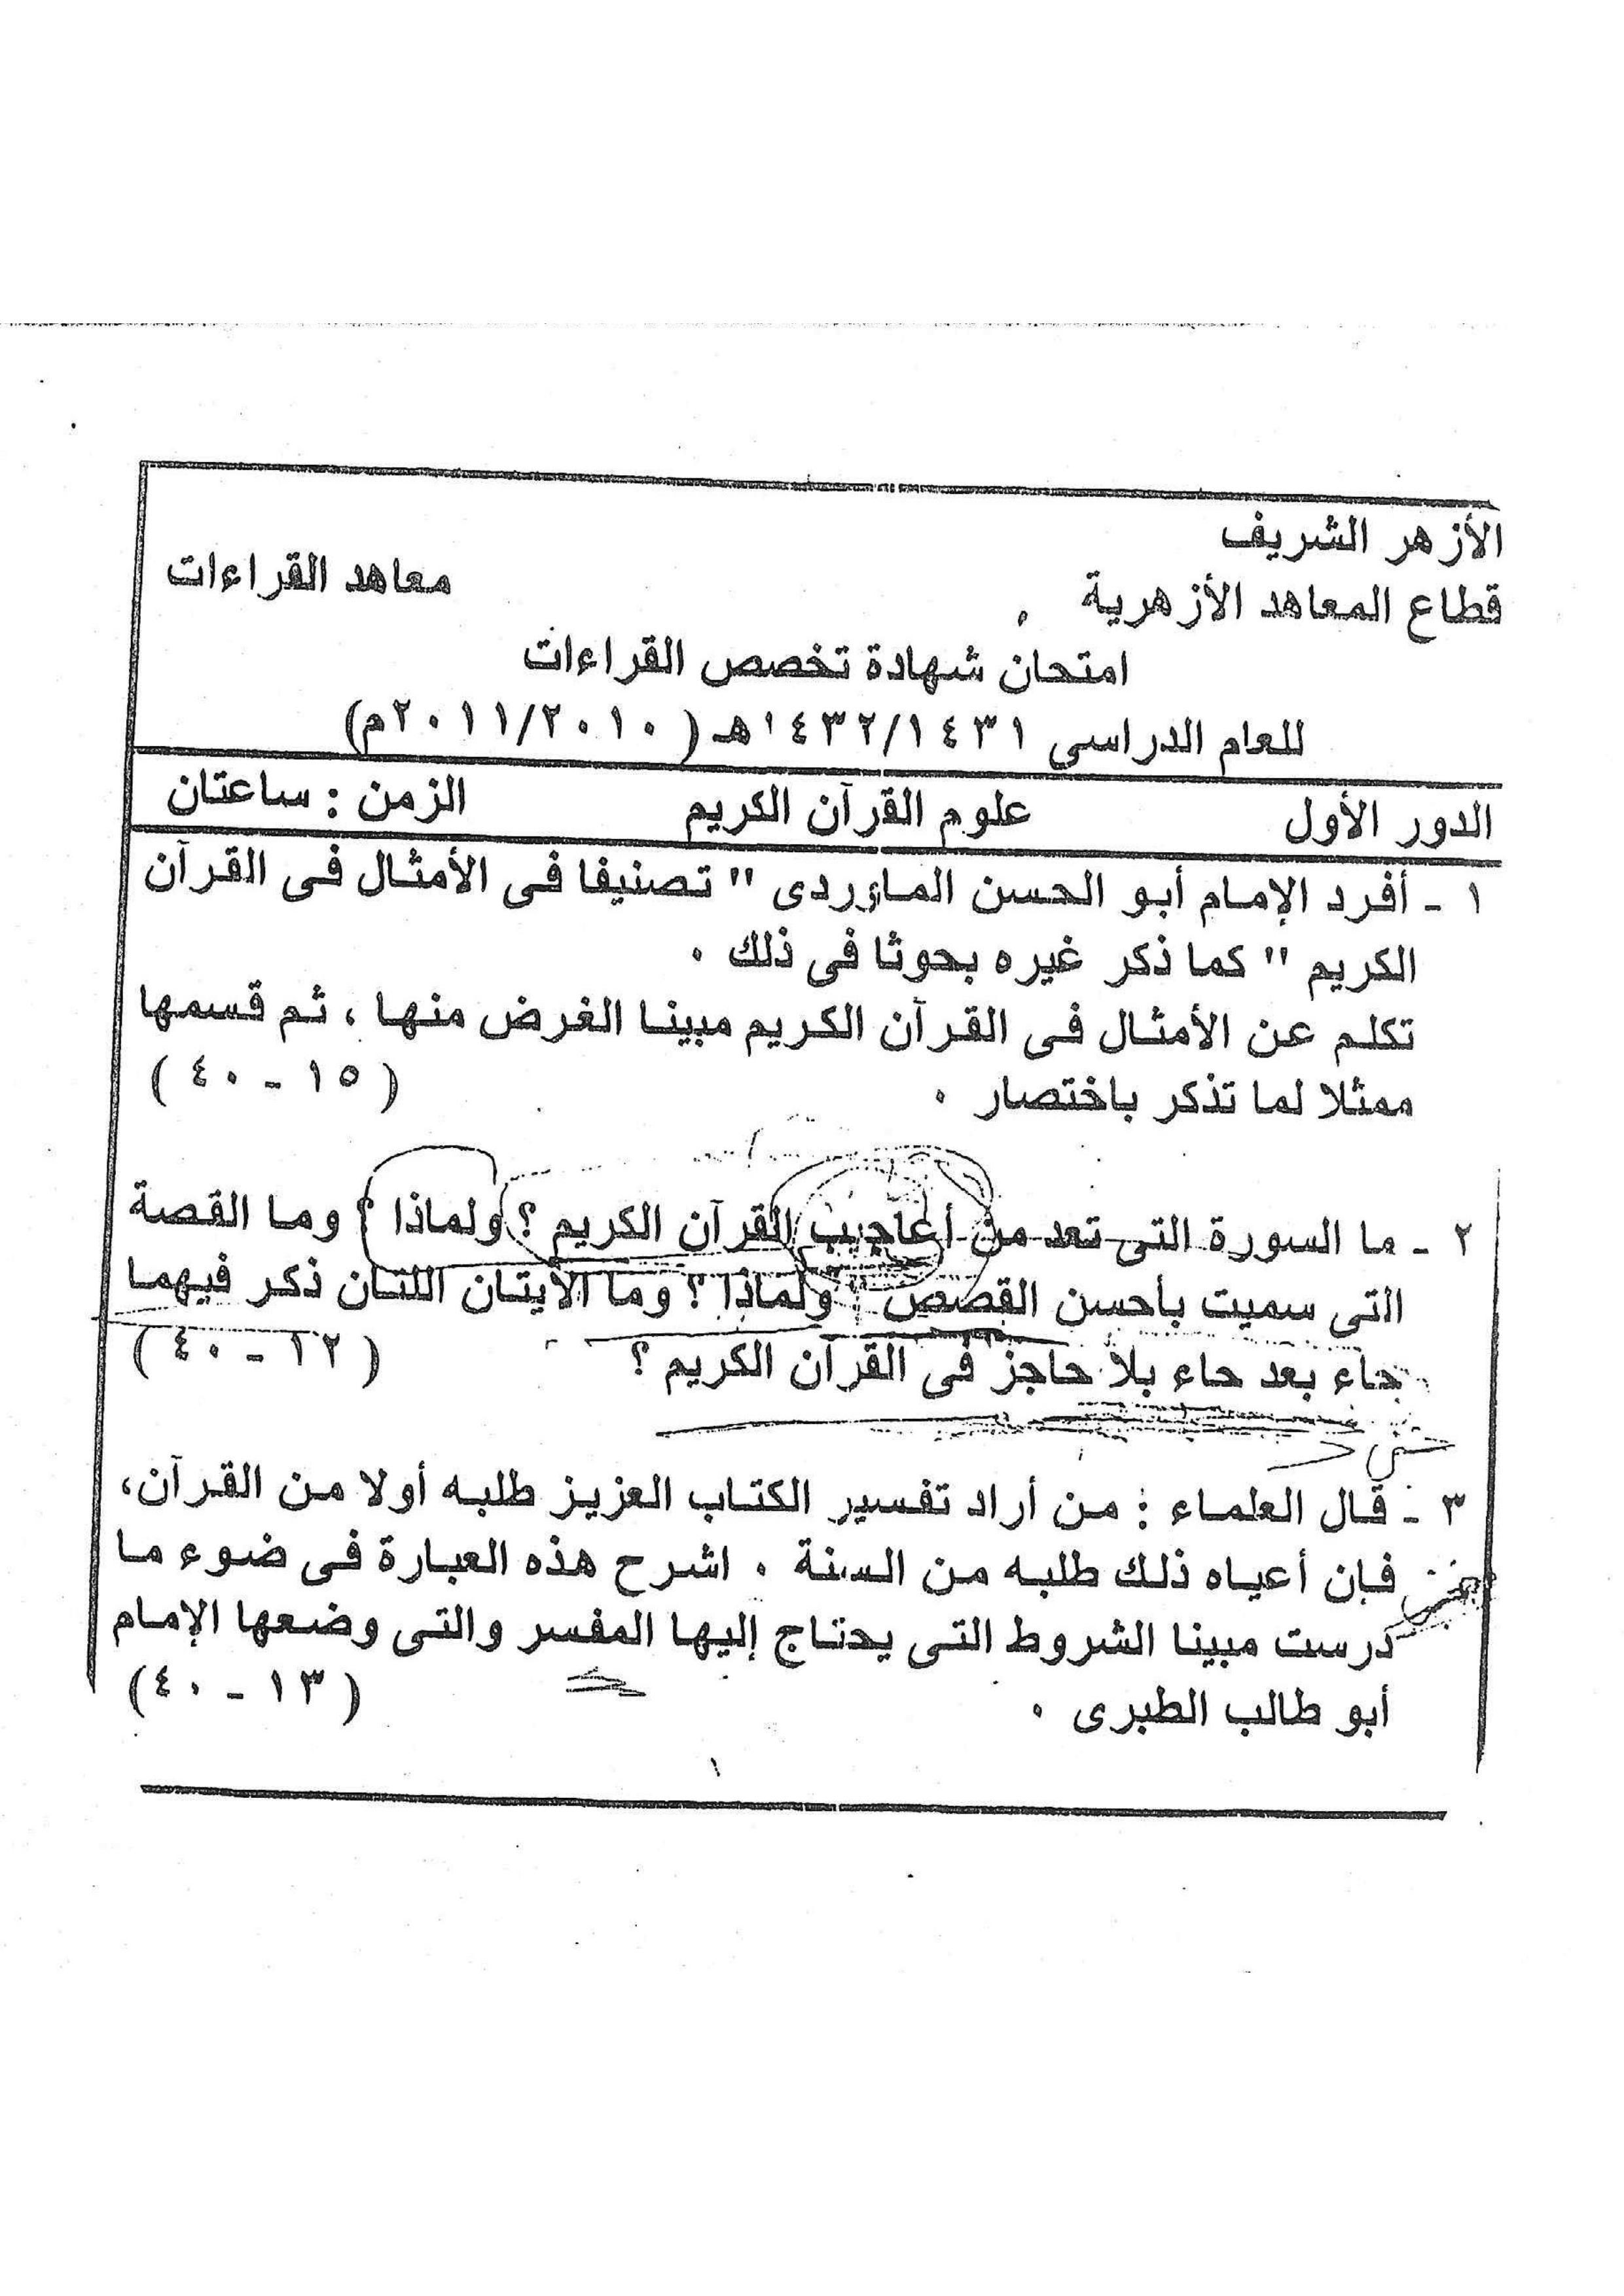 الأزهر الشريف
قطاع المعاهد الأزهرية معاهد القراءات
امتحان شهادة تخصص القراءات
للعام الدراسى ١٤٣٢/١٤٣١هـ ( ٢٠١١/٢٠١٠م)
الدور الأول علوم القرآن الكريم الزمن : ساعتان
١ - أفرد الإمام أبو الحسن الماوردى " تصنيفا فى الأمثال فى القرآن
الكريم " كما ذكر غيره بحوثا فى ذلك .
تكلم عن الأمثال فى القرآن الكريم مبينا الغرض منها ، ثم قسمها
ممثلا لما تذكر باختصار . ( ١٥ - ٤٠ )
٢ - ما السورة التى تعد من أعاجيب القرآن الكريم ؟ ولماذا ؟ وما القصة
التى سميت بأحسن القصص ولماذا ؟ وما الآيتان اللتان ذكر فيهما
حاء بعد حاء بلا حاجز فى القرآن الكريم ؟ ( ١٢ - ٤٠ )
٣ - قال العلماء : من أراد تفسير الكتاب العزيز طلبه أولا من القرآن،
فإن أعياه ذلك طلبه من السنة . اشرح هذه العبارة فى ضوء ما
درست مبينا الشروط التى يحتاج إليها المفسر والتى وضعها الإمام
أبو طالب الطبرى . ( ١٣ - ٤٠ )